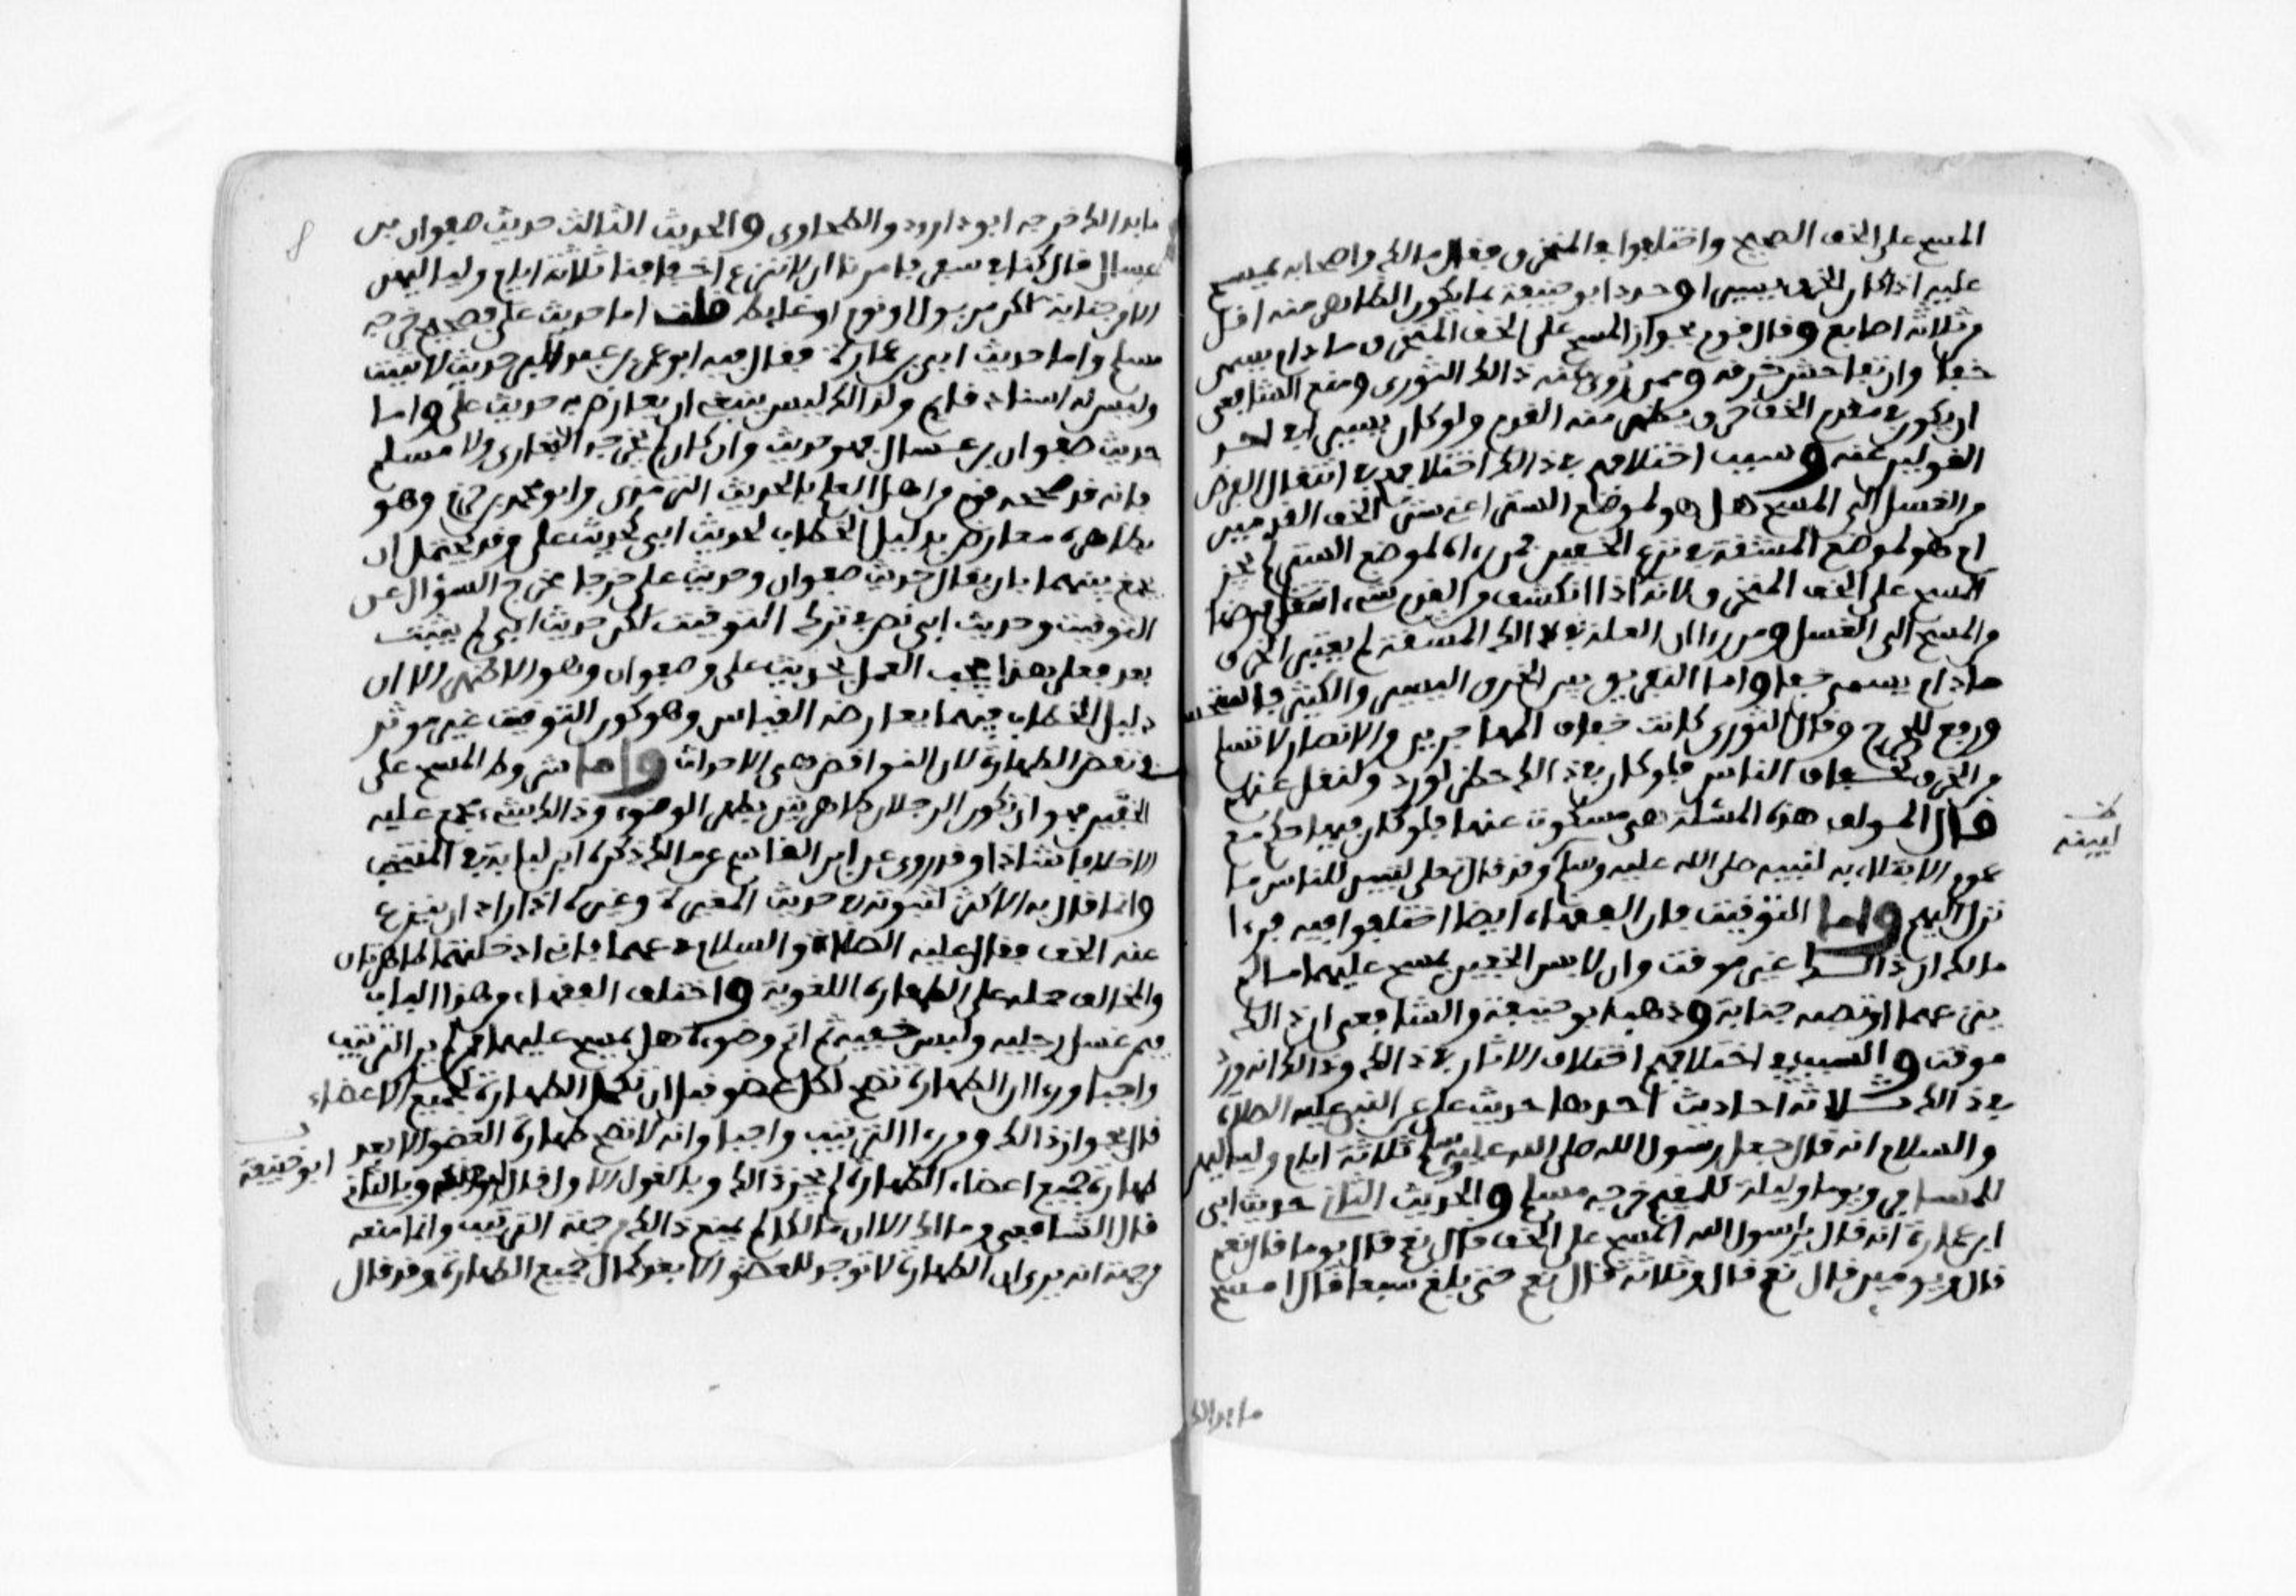 المسح على الخف الصحيح واختلفوا في المنخرق فقال مالك واصحابه يمسح
عليه اذا كان الخرق يسيرا وحدد ابو حنيفة بما يكون الظاهر منه اقل
من ثلاثة اصابع وقال قوم بجواز المسح على الخف المنخرق ما دام يسمى
خفا وان تفاحش خرقه وممن روي عنه ذالك الثوري ومنع الشافعي
ان يكون في مقدم الخف خرق يظهر منه القدم ولو كان يسيرا في احد
القولين عنه وسبب اختلافهم في ذالك اختلافهم في انتقال الفرض
من الغسل الى المسح هل هو لموضع الستر اعني ستر الخف القدمين
ام هو لموضع المشقة في نزع الخفين فمن رءاه لموضع الستر لم يجز
المسح على الخف المنخرق لانه اذا انكشف من القدم شيء انتقل فرضها
من المسح الى الغسل ومن رءا ان العلة في ذالك المشقة لم يعتبر الخرق
ما دام يسمى خفا واما التفريق بين الخرق اليسير والكثير فاستحسان
ورفع للحرج وقال الثوري كانت خفاف المهاجرين والانصار لا تسلم
من الخرق كخفاف الناس فلو كان في ذالك حظر لورد ولنقل عنهم
قال المولف هذه المسئلة هي مسكوت عنها فلو كان فيها حكم مع
عموم الابتلاء به لبينه صلى الله عليه وسلم وقد قال تعلى لتبين للناس ما
نزل اليهم واما التوقيت فان الفقهاء ايضا اختلفوا فيه فرءا
مالك ان ذالك غير موقت وان لابس الخفين يمسح عليهما ما لم
ينزعهما او تصبه جنابة وذهب ابو حنيفة والشافعي ان ذالك
موقت والسبب في اختلافهم اختلاف الاثار في ذالك وذالك انه ورد
في ذالك ثلاثة احاديث احدها حديث علي عن النبي عليه الصلاة
والسلام انه قال جعل رسول الله صلى الله عليه وسلم ثلاثة ايام ولياليهن
للمسافر ويوما وليلة للمقيم خرجه مسلم والحديث الثاني حديث ابي
ابن عمارة انه قال يا رسول الله امسح على الخف قال نعم قال يوما قال نعم
قال ويومين قال نعم قال وثلاثة قال نعم حتى بلغ سبعا قال امسح
ما بدا لك
ما بدا لك خرجه ابو داوود والطحاوي والحديث الثالث حديث صفوان بن
عسال قال كنا في سفر فامرنا ان لا ننزع اخفافنا ثلاثة ايام ولياليهن
الا من جنابة لكن من بول او نوم او غايط قلت اما حديث علي فصحيح خرجه
مسلم واما حديث ابي بن عمارة فقال فيه ابو عمر بن عبد البر حديث لا يثبت
وليس له اسناد قايم ولذالك ليس ينبغي ان يعارض به حديث علي واما
حديث صفوان بن عسال فهو حديث وان كان لم يخرجه البخاري ولا مسلم
فانه قد صححه قوم من اهل العلم بالحديث الترمذي وابو محمد بن حزم وهو
بظاهره معارض بدليل الخطاب لحديث ابي كحديث علي وقد يحتمل ان
يجمع بينهما بان يقال حديث صفوان وحديث علي خرجا مخرج السؤال عن
التوقيت وحديث ابي نص في ترك التوقيت لكن حديث ابي لم يثبت
بعد فعلى هذا يجب العمل بحديث علي وصفوان وهو الاظهر الا ان
دليل الخطاب فيهما يعارضه القياس وهو كون التوقيت غير موثر
في نقض الطهارة لان النواقض هي الاحداث واما شروط المسح على
الخفين فهو ان تكون الرجلان طاهرتين بطهر الوضوء وذالك شيء مجمع عليه
الا خلافا شاذا وقد روي عن ابن القاسم عن مالك ذكره ابن لبابة في المنتخب
وانما قال به الاكثر لثبوته في حديث المغيرة وغيره اذا اراد ان ينزع
عنه الخف فقال عليه الصلاة والسلام دعهما فاني ادخلتهما طاهرتان
والمخالف حمله على الطهارة اللغوية واختلف الفقهاء من هذا الباب
فيمن غسل رجليه ولبس خفيه ثم اتم وضوءه هل يمسح عليهما فمن لم ير الترتيب
واجبا ورءا ان الطهارة تصح لكل عضو قبل ان تكمل الطهارة لجميع الاعضاء
قال بجواز ذالك ومن رءا الترتيب واجبا وانه لا تصح طهارة العضو الا بعد
طهارة جميع اعضاء الطهارة لم يجز ذالك وبالقول الاول قال ابو حنيفة وبالثاني
قال الشافعي ومالك الا ان مالكا لم يمنع ذالك من جهة الترتيب وانما منعه
من جهة انه يرى ان الطهارة لا توجد للعضو الا بعد كمال جميع الطهارة وقد قال
ابو حنيفة